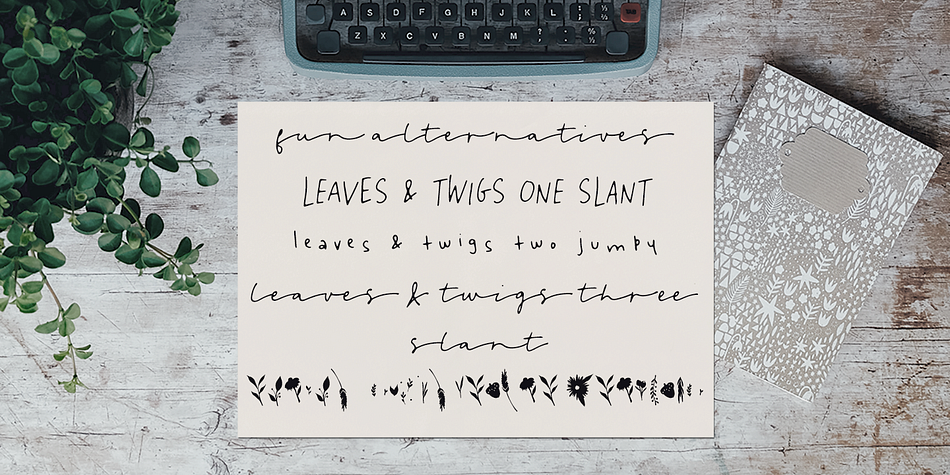 A S D F G H J K L
Z X C V B N M
fun alternatives
LEAVES & TWIGS ONE SLANT
leaves & twigs two jumpy
leaves & twigs three
slant